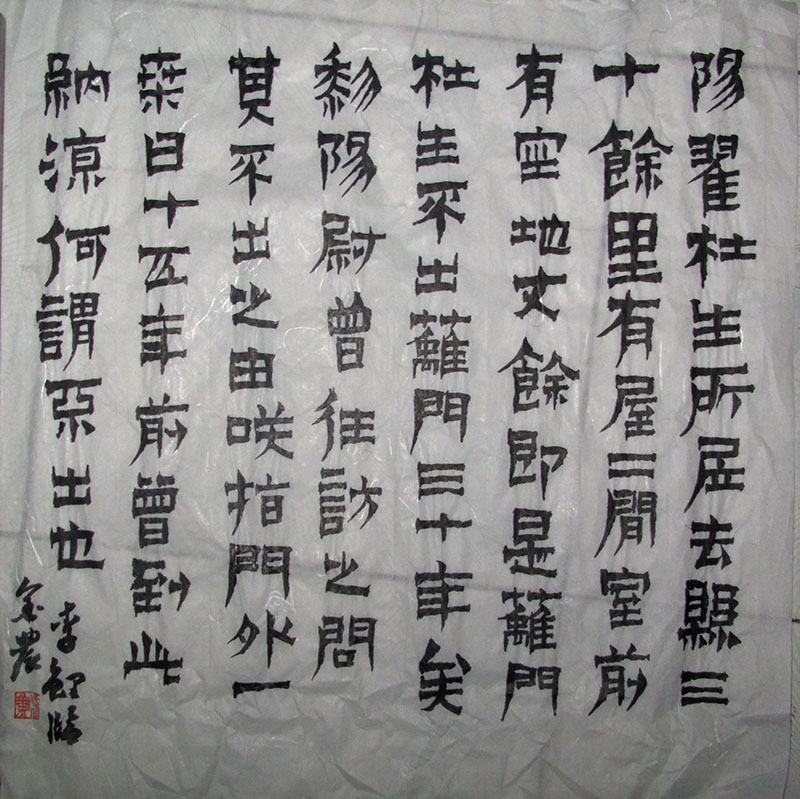 陽翟杜生所居去縣三
十餘里有屋二間室前
有空地丈餘即是蘺門
杜生不出蘺門三十年矣
黍陽尉曾往訪之問
其不出之由咲指門外一
桒日十五年前曾到此
納涼何謂不出也
李鋰臨
金農